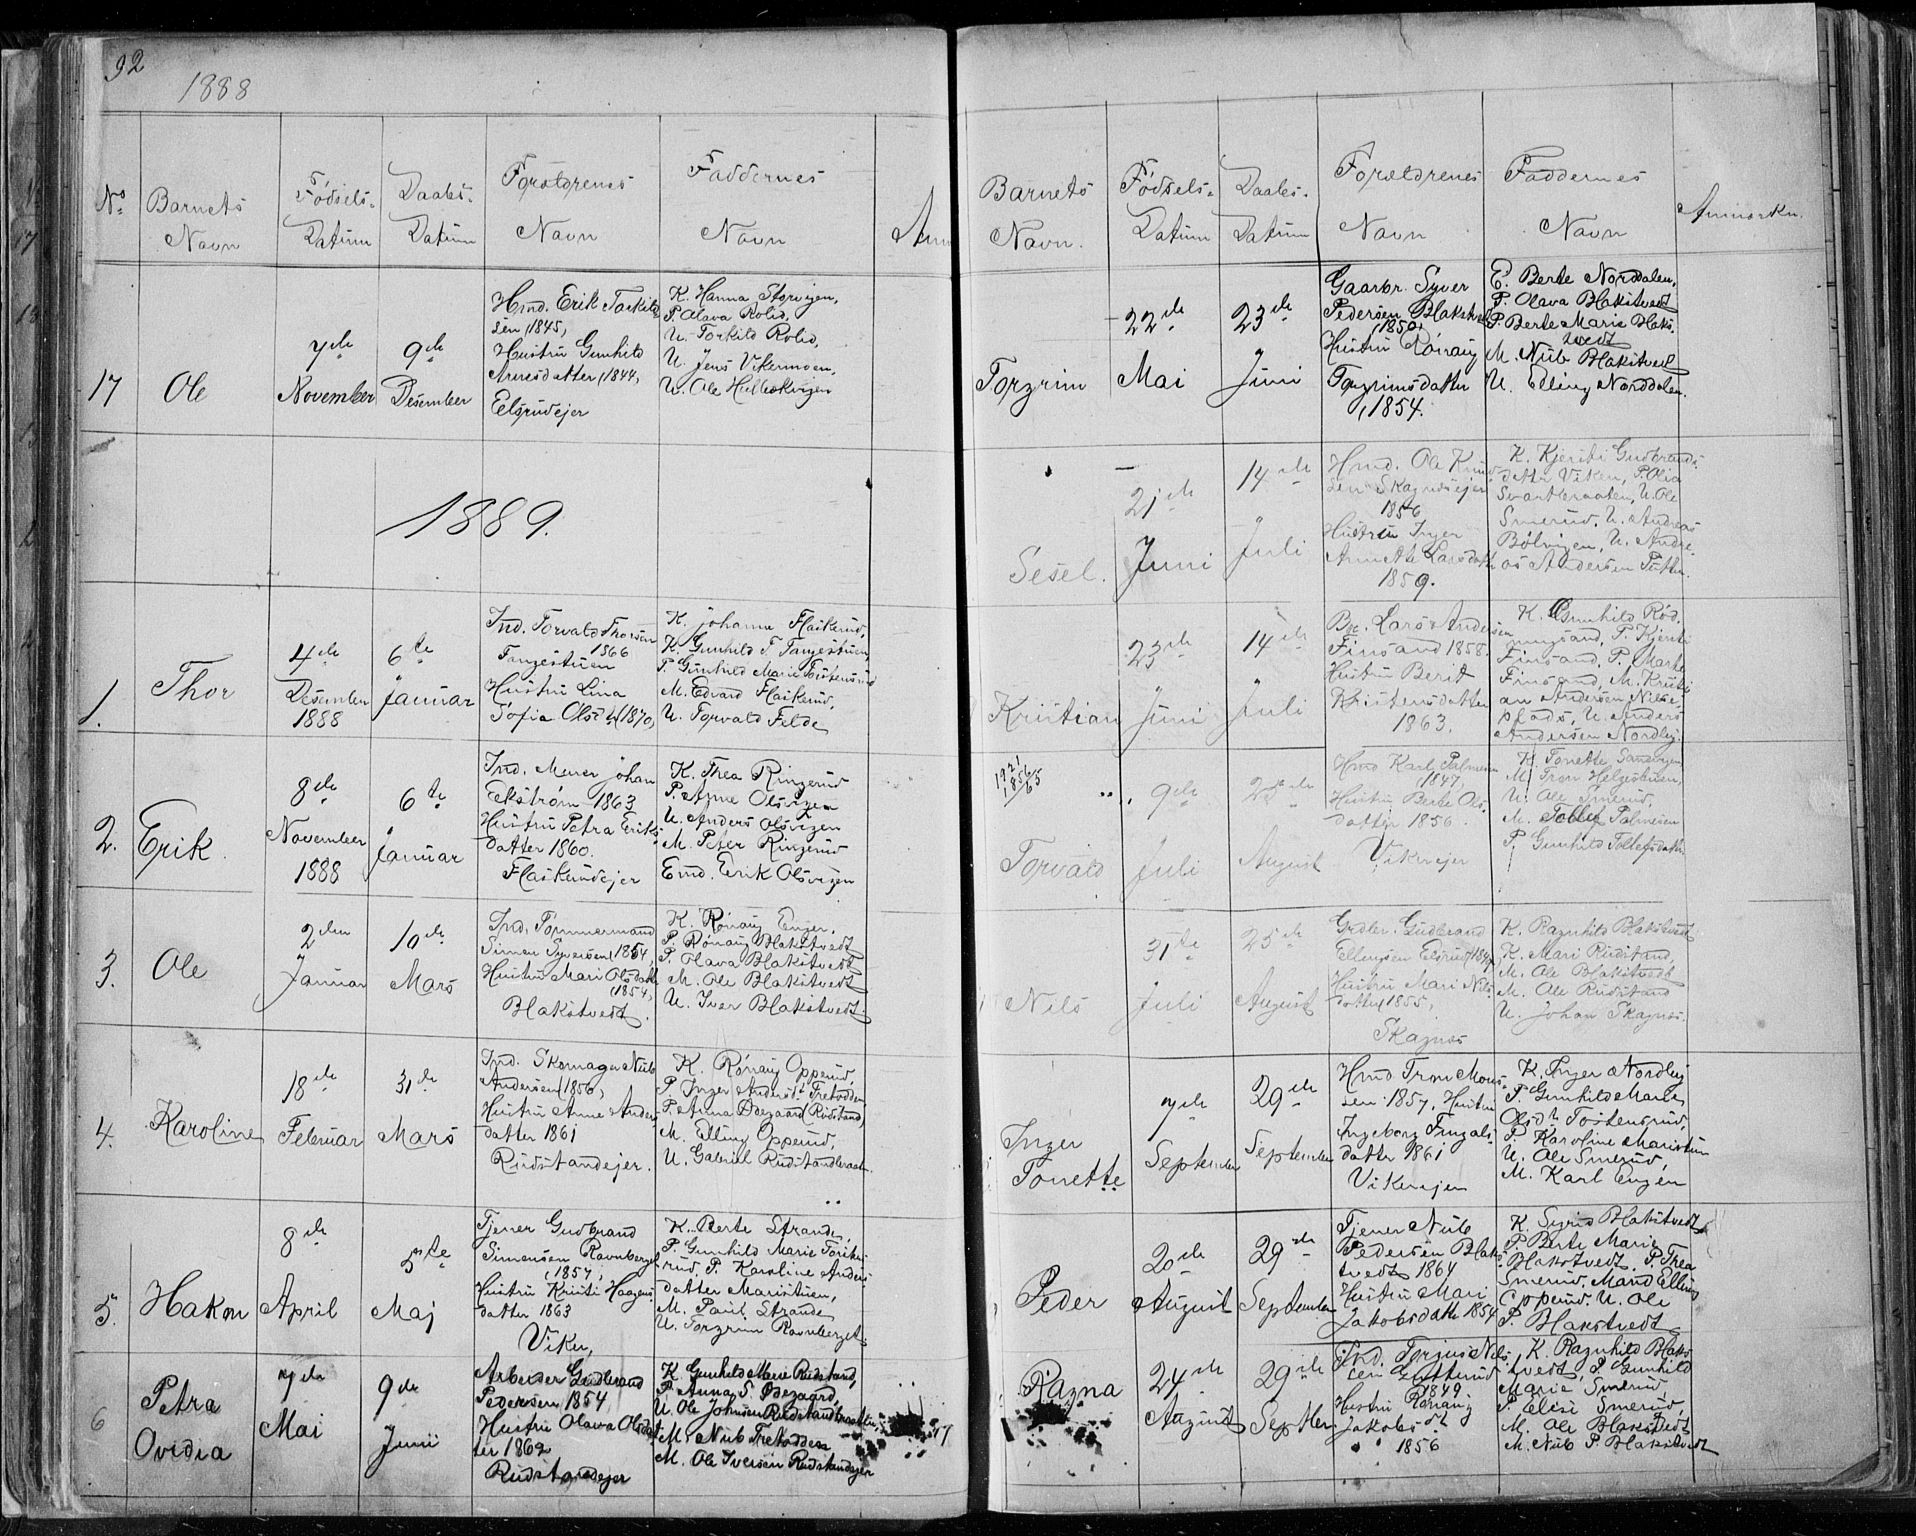 92
1888
No.
Barnets
Navn
Fødsels-
Datum
Daabs-
Datum
Forældrenes
Navn
Faddernes
Navn
17
Ole
7de
November
9de
Desember
Hmd. Erik Torkild
sen (1845,
Hustru Gunhild
Arnesdatter (1844,
Elsrudejer
K. Hanna Storvigen,
P. Olava Rolid,
U. Torkild Rolid,
U. Jens Vikermoen,
U. Ole
1889.
1.
Thor
4de
Desember
1888
6te
Januar
Ind. Torvald Thorsen
1866
Tangestuen
Hustru Lina
Sofia Olsdt (1870,
K. Johanne Flaskerud,
K. Gunhild T. Tangestuen,
P. Gunhild Marie Tostensrud
M. Edvard Flaskerud,
U. Torvald Felde
2.
Erik
8de
November
1888
6te
Januar
Ind. Murer Johan
Ekstrøm 1863
Hustru Petra Eriks-
datter 1860.
Flaskerudejer
K. Thea Ringerud
P. Anne Olsvigen
U. Anders Olsvigen
M. Peter Ringerud
Emd. Erik Olsvigen
3.
Ole
2den
Januar
10de
Mars
Ind. Tømmermand
Simen Syversen (1854,
Hustru Mari Olsdatter
(1854,
Blakstvedt.
K. Rønaug Enger.
P. Rønaug Blakstvedt
P. Olava Blakstvedt
M. Ole Blakstvedt
U. Iver Blakstvedt.
4.
Karoline
18de
Februar
31de
Mars
Ind. Skomager Nub
Andersen (1856,
Hustru Anne Anders-
datter 1861
Rudstandejer.
K. Rønaug Opperud,
P. Inger Andersdt Tretodden
P. Anna Ødegaard (Rudstand,
M. Elling Opperud,
U. Gabriel Rudstandbraaten
5.
Hakon
8de
April
5te
Maj
Tjener Gudbrand
Simensen Ravnberget
(1857,
Hustru Kristi Haagens-
datter 1863
Viker,
K. Berte Strande,
P. Gunhild Marie Torikes-
rud, P. Karoline Anders-
datter Maristuen,
M. Paul Strande
U. Torgrim Ravnberget
6
Petra
Ovidia
7de
Mai
9de
Juni
Arbeider Gudbrand
Pedersen 1854
Hustru Olava Olsdat-
ter 1862
Rudstandejer
K. Gunhild Marie Rudstand,
P. Anna S. Ødegaard,
U. Ole Johnsen Rudstandbraaten
M. Nub Tretodden
M. Ole Iversen Rudstandejer
Barnets
Navn.
Fødsels-
Datum
Daabs-
Datum
Forældrenes
Navn
Faddernes
Navn
Anmærkn.
Torgrim
22de
Mai
23de
Juni
Gaarbr. Syver
Pedersen Blakstvedt
(1850,
Hustru Rønaug
Torgrimsdatter
(1854.
E. Berte Norddalen,
P. Olava Blakstvedt
P. Berte Marie Blaks-
tvedt
M. Nub Blakstvedt
U. Elling Norddalen.
Sesel.
21de
Juni
14de
Juli
Hmd. Ole Knud-
sen Skagnesejer
1856
Hustru Inger
Annette Larsdatter
1859.
K. Kjersti Gudbrands-
datter Viken, P. Olia
Svartbraaten, U. Ole
Smerud. U. Andreas
Bølvigen, U. Andre-
as Andersen Putten.
Kristian
23de
Juni
14de
Juli
Lars Andersen
Finsand 1858.
Hustru Berit
Kristensdatter
1863.
K. Gunhild Rød,
P. Kjersti
Finsand, P. Marte
Finsand, M. Kristi-
an Andersen Nilse-
plads, U. Anders
Andersen Nordby.
1921
1856
65
Torvald
9de
Juli
25de
August
Hmd Karl Palmesen
1847,
Hustru Berte Ols-
datter 1856.
Vikerejer
K. Tonette
M. Tron Helgestuen,
U. Ole Smerud,
M. Tollef Palmesen
P. Gunhild Tollefsdatter
Nils
31te
Juli
25de
August
Grdbr. Gudbrand
Ellingsen Elsrud (1847,
Hustru Mari Nils-
datter (1855,
Skagnes
K. Ragnhild Blakstvedt
K. Mari Rudstand,
M. Ole Blakstvedt
M. Ole Rudstand
U. Johan Skagnes.
Inger
Tonette
7de
September
29de
September
Hmd Tron Mons-
sen 1857, Hustru
Ingeborg Fingals-
datter 1861
Vikerejer
K. Inger Nordby
P. Gunhild Marie
Olsdt Tostensrud,
P. Karoline Maristuen
U. Ole Smerud,
M. Karl Engen
Peder
20de
August
29de
September
Tjener Nub
Pedersen Blaks-
tvedt 1864
Hustru Mari
Jakobsdatter 1854
K. Sigrid Blakstvedt
P. Berte Marie
Blakstvedt. P. Thea
Smerud. M. Elling
Opperud. U. Ole
P. Blakstvedt
Ragna
24de
August
29de
Septber
Ind. Torgus Nils-
sen
1849
Hustru Rønaug
Jakobsdt
1856
K. Ragnhild Blaks-
tvedt, P. Gunhild
Marie Smerud,
P. Elise Smerud,
M. Ole Blakstvedt
M. Nub P. Blakstvedt